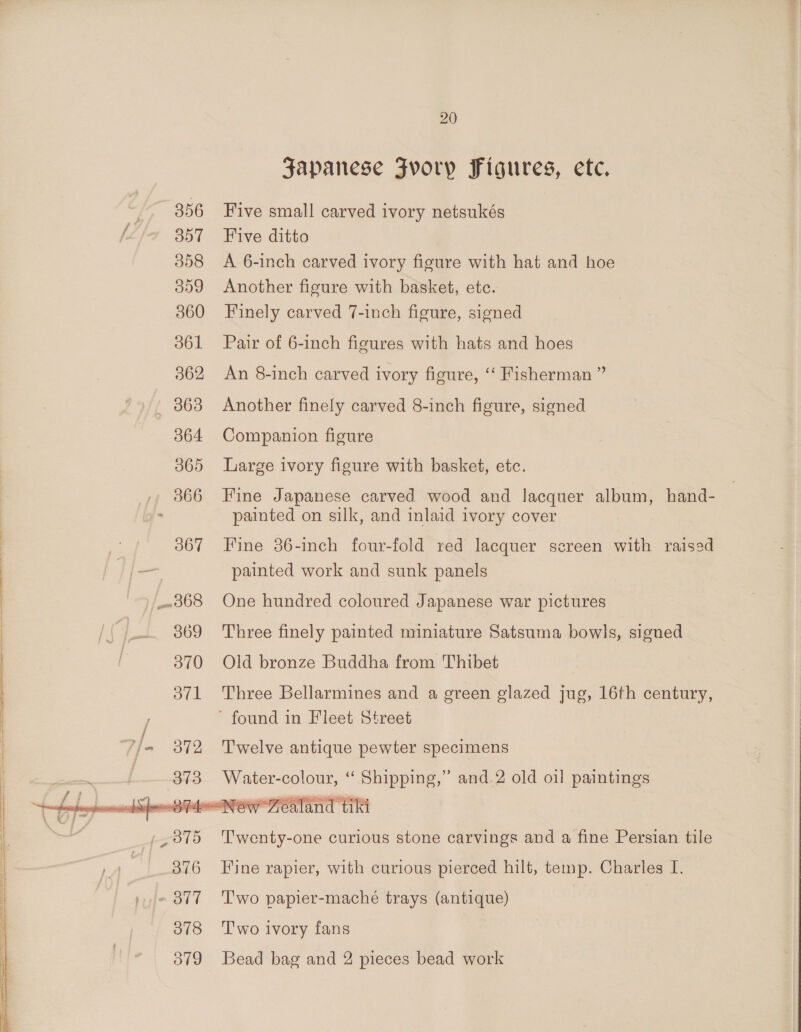 20
Japanese Ivory Figures, etc.
356 Five small carved ivory netsukés
357 Five ditto
358 A 6-inch carved ivory figure with hat and hoe
359 Another figure with basket, etc.
360 Finely carved 7-inch figure, signed
361 Pair of 6-inch figures with hats and hoes
362 An 8-inch carved ivory figure, “ Fisherman ”
363 Another finely carved 8-inch figure, signed
364 Companion figure
365 Large ivory figure with basket, etc.
366 Fine Japanese carved wood and lacquer album, hand-
painted on silk, and inlaid ivory cover
367 Fine 36-inch four-fold red lacquer screen with raised
painted work and sunk panels
368 One hundred coloured Japanese war pictures
369 Three finely painted miniature Satsuma bowls, signed
370 Old bronze Buddha from Thibet
371 Three Bellarmines and a green glazed jug, 16th century,
found in Fleet Street
7/- 372 Twelve antique pewter specimens
373 Water-colour, “ Shipping,” and 2 old oil paintings
374 New Zealand tiki
375 Twenty-one curious stone carvings and a fine Persian tile
376 Fine rapier, with curious pierced hilt, temp. Charles I.
377 Two papier-maché trays (antique)
378 Two ivory fans
379 Bead bag and 2 pieces bead work